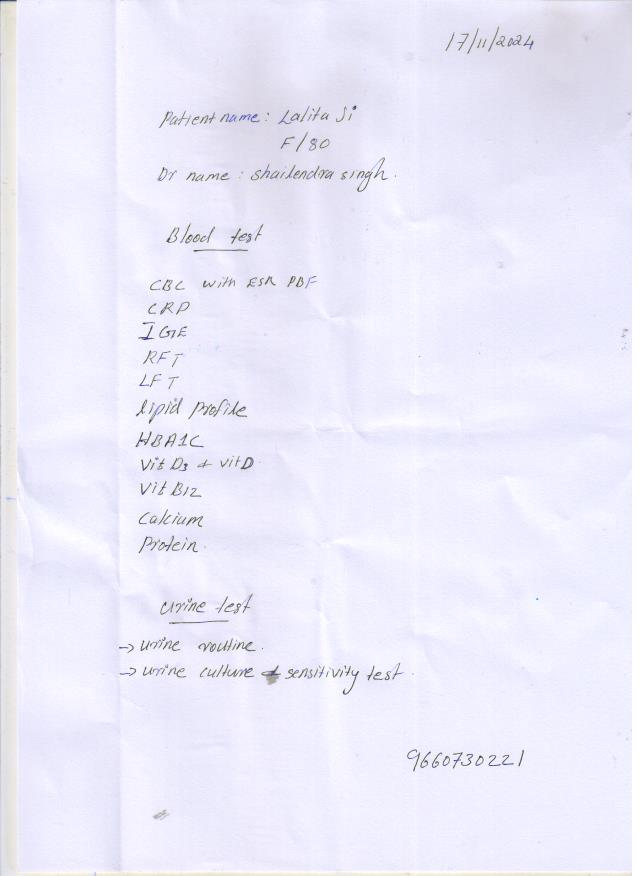 17/11/2024
Patient name: Lalita Ji
F/80
Dr name: Shailendra Singh.
Blood test
CBC with ESR PBF
CRP
IGE
RFT
LFT
lipid profile
HBA1C
Vit D3 + Vit D
Vit B12
Calcium
Protein.
Urine test
→ urine routine.
→ urine culture + sensitivity test.
9660730221